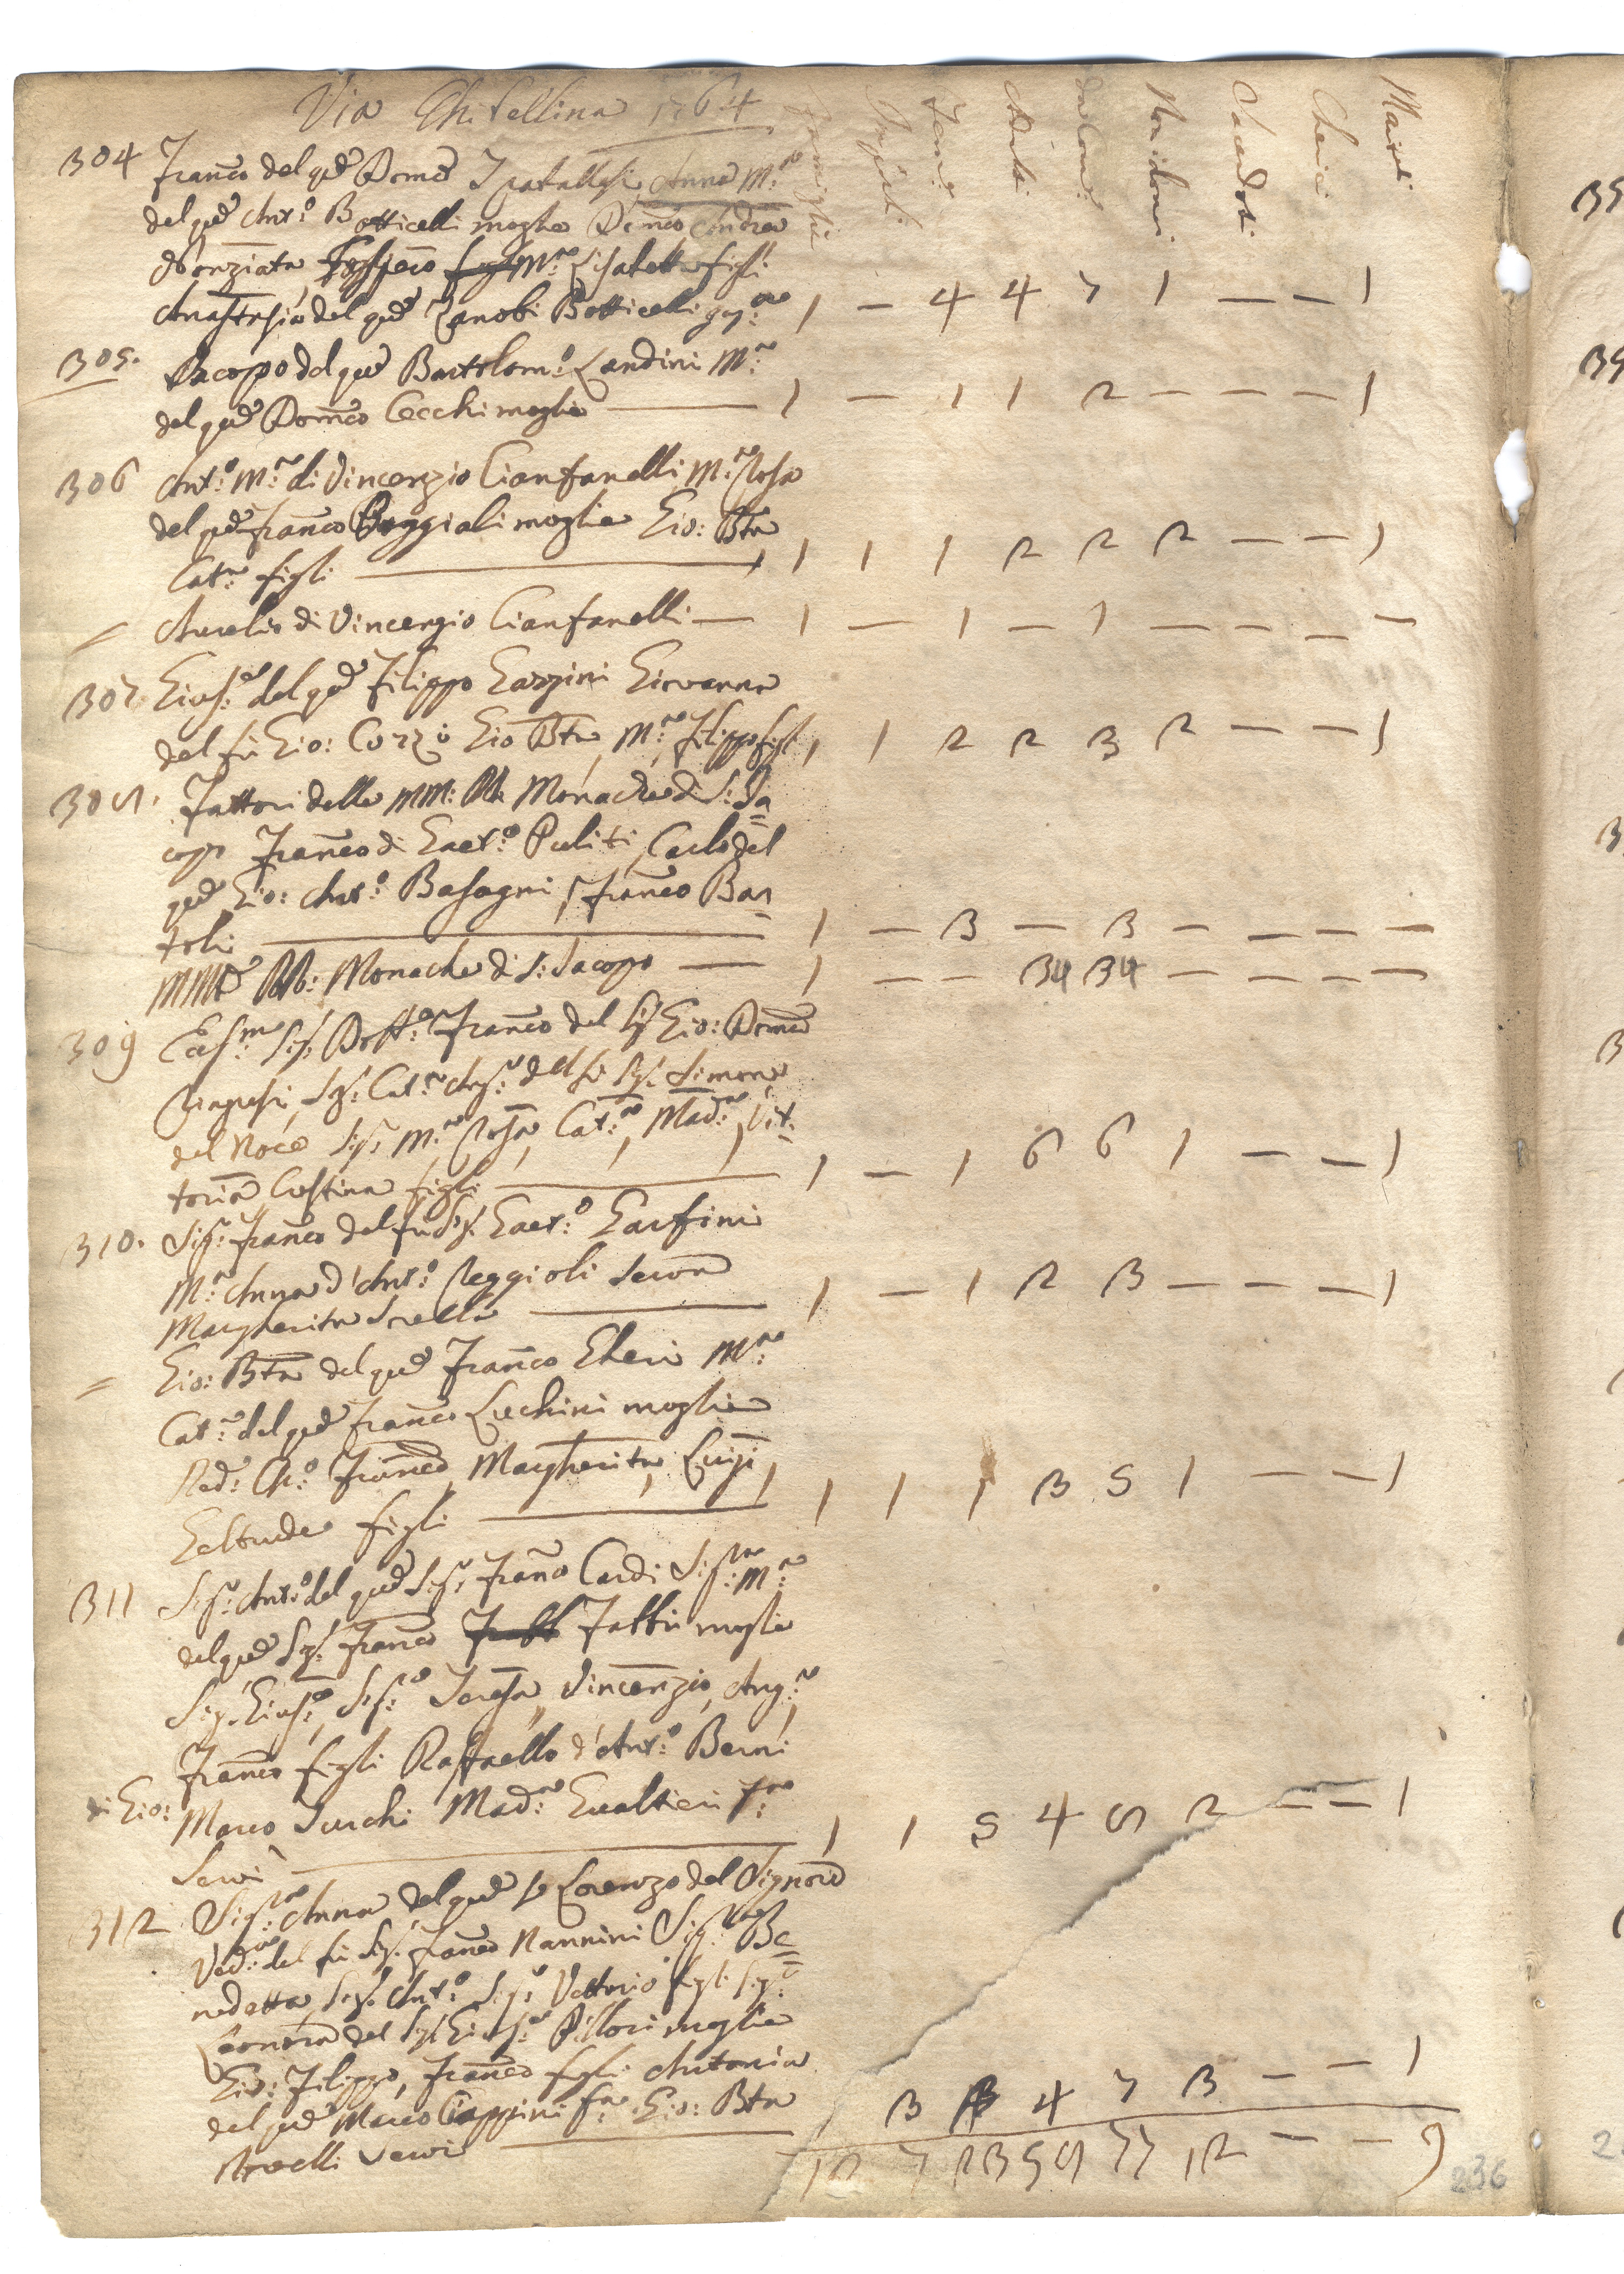 Via Ghibellina 1764
Famiglie Impuberi Femi: Adulti da Com: Non idonei Sacerdoti Cherici Mariti
304 Franco del qd Domco Anna M.a
del qd Ant:o Botticelli moglie Domco Andrea
Nonziata M.a Lisabetta figli
Anastasia del qd Zanobi Botticelli 1 — 4 4 7 1 — — 1
305. Jacopo del qd Bartolom:o Landini M:a
del qd Domco Cecchi moglie — 1 — 1 1 2 — — — 1
306 Ant:o M:a di Vincenzio Cianfanelli M:a Rosa
del qd Franco Poggiali moglie Gio: Bta
Cat:a figli — 1 1 1 2 2 2 — — 1
= Aurelio di Vincenzio Cianfanelli — 1 — 1 — 1 — — — —
307. Gius:e del qd Filippo Gazzini Giovanna
del fu Gio: Cozzi Gio Bta, M:a, Filippo figli 1 1 2 2 3 2 — — 1
308. Fattori delle MM: RR: Monache di S: Ja=
copo Franco di Gaet:o Puliti, Carlo del
qd Gio: Ant:o Basagni, Franco Bar=
toli — 1 — 3 — 3 — — — —
MM: RR: Monache di S: Jacopo — 1 — — 34 34 — — — —
309 Eccl:mo Sig: Dott:e Franco del Sig Gio: Domco
Sig: Cat:a Ang:a del fu Sig: Simone
del Noce Sig: M:a Rosa, Cat:a, Mad:a, Vit=
toria Cristina figli — 1 — 1 6 6 1 — — 1
310. Sig: Franco del fu Sig: Gaet:o Garfini
M:a Anna d'Ant:o Reggioli Serva
Margherita Sorella — 1 — 1 2 3 — — — 1
= Gio: Bta del qd Franco Gheri M:a
Cat:a del qd Franco Luchini moglie
Red: Ch:o Franco, Margherita, Luigi,
Geltrude figli — 1 1 1 3 5 1 — — 1
311 Sig: Ant:o del qd Sig: Franco Cardi Sig:ra M:a
del qd Sig: Franco Fabbri moglie
Sig. Gius:e, Sig:a Teresa, Vincenzio, Ang:a,
Franco figli Raffaello d'Ant:o Berni
di Gio: Marco Turchi Mad:a Gualtieri
Servi — 1 1 5 4 8 2 — — 1
312 Sig:ra Anna del qd Lorenzo del Signore
Ved:a del fu Sig. Franco Nannini Sig:ra Be=
nedetta Sig. Ant:o Sig: Vettorio figli Sig:a
Leonora del Sig Gius:e Pillori moglie
Gio: Filippo, Franco figli Antonia
del qd Marco Ciappini Gio: Bta
Servi — 1 3 3 4 7 3 — — 1
12 7 23 58 77 12 — — 9
236